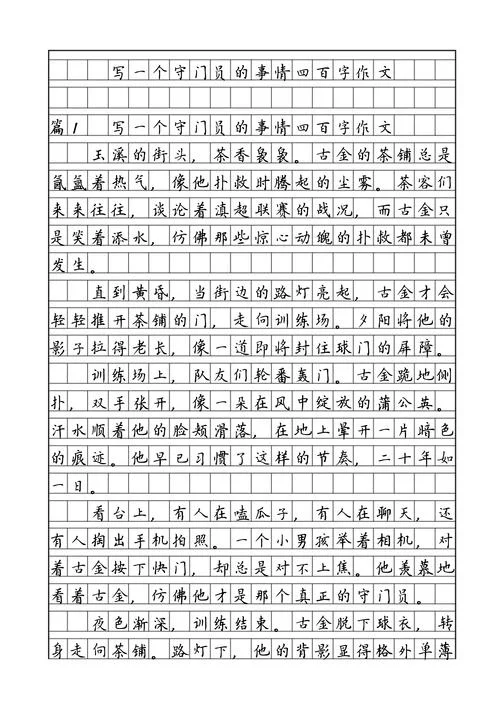 写一个守门员的事情四百字作文
篇1 写一个守门员的事情四百字作文
玉溪的街头，茶香袅袅。古金的茶铺总是
氤氲着热气，像他扑救时腾起的尘雾。茶客们
来来往往，谈论着滇超联赛的战况，而古金只
是笑着添水，仿佛那些惊心动魄的扑救都未曾
发生。
直到黄昏，当街边的路灯亮起，古金才会
轻轻推开茶铺的门，走向训练场。夕阳将他的
影子拉得老长，像一道即将封住球门的屏障。
训练场上，队友们轮番轰门。古金跪地侧
扑，双手张开，像一朵在风中绽放的蒲公英。
汗水顺着他的脸颊滑落，在地上晕开一片暗色
的痕迹。他早已习惯了这样的节奏，二十年如
一日。
看台上，有人在嗑瓜子，有人在聊天，还
有人掏出手机拍照。一个小男孩举着相机，对
着古金按下快门，却总是对不上焦。他羡慕地
看着古金，仿佛他才是那个真正的守门员。
夜色渐深，训练结束。古金脱下球衣，转
身走向茶铺。路灯下，他的背影显得格外单薄